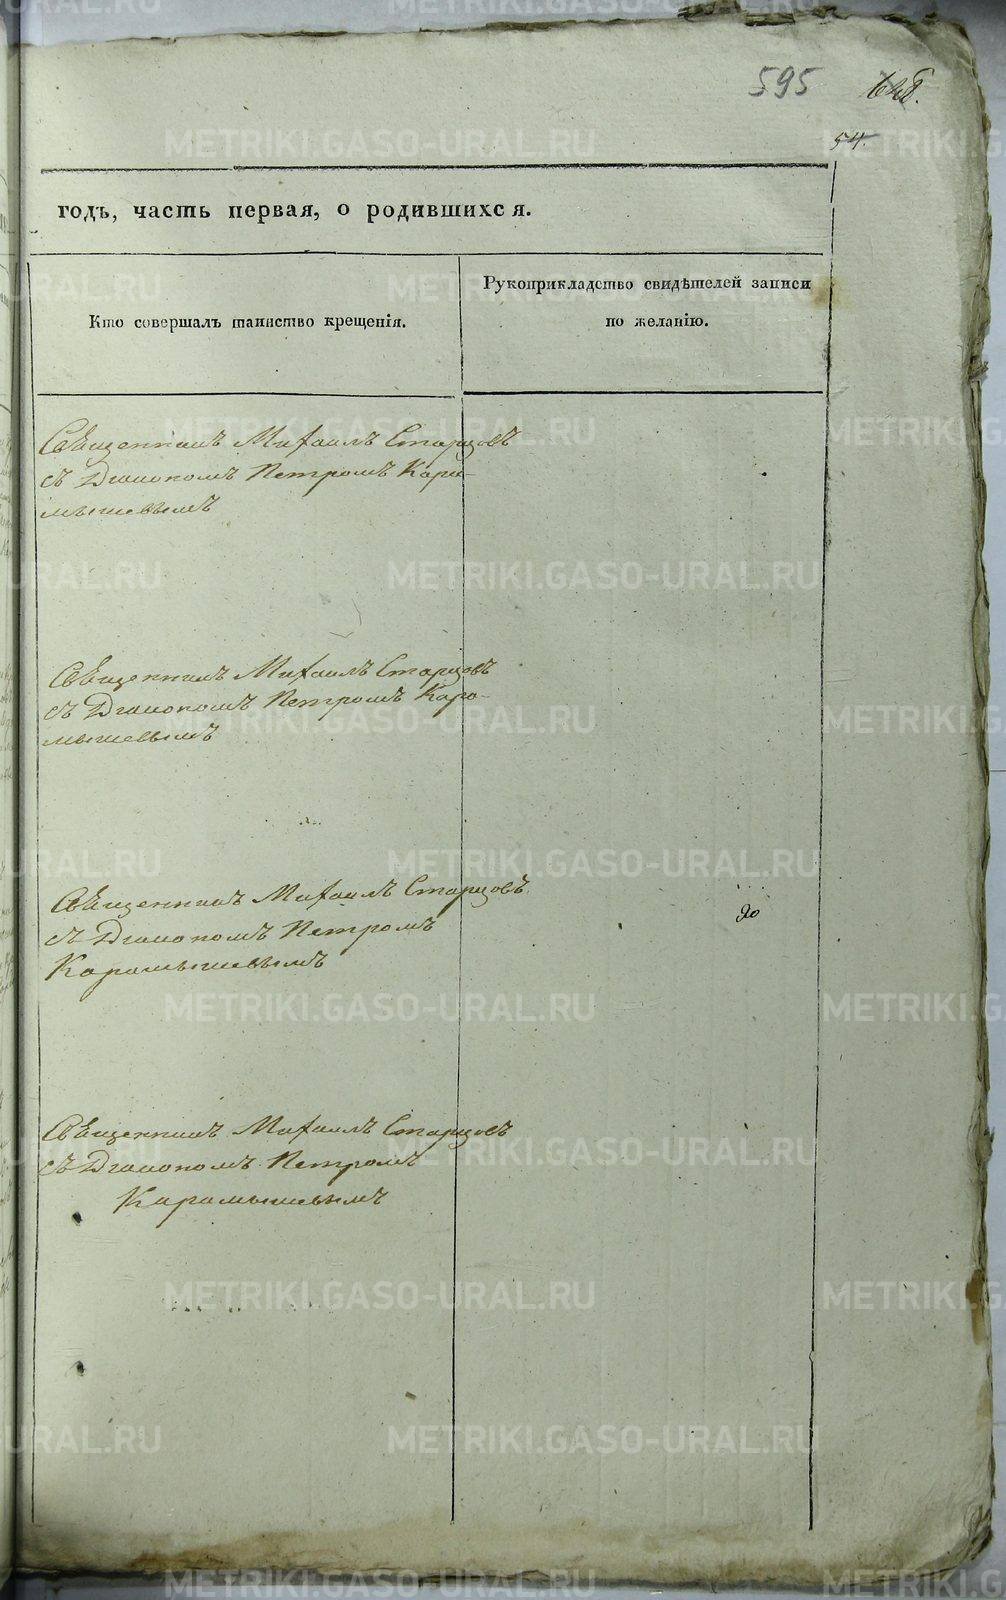 595
54.
годъ, часть первая, о родившихся.
Кто совершалъ таинство крещенія.
Рукоприкладство свидѣтелей записи
по желанію.
Священникъ Михаилъ Старцовъ
съ Дьякономъ Петромъ Кара-
мышевымъ
Священникъ Михаилъ Старцовъ
съ Дьякономъ Петромъ Кара-
мышевымъ
Священникъ Михаилъ Старцовъ
съ Дьякономъ Петромъ
Карамышевымъ
Священникъ Михаилъ Старцовъ
съ Дьякономъ Петромъ
Карамышевымъ
METRIKI.GASO-URAL.RU